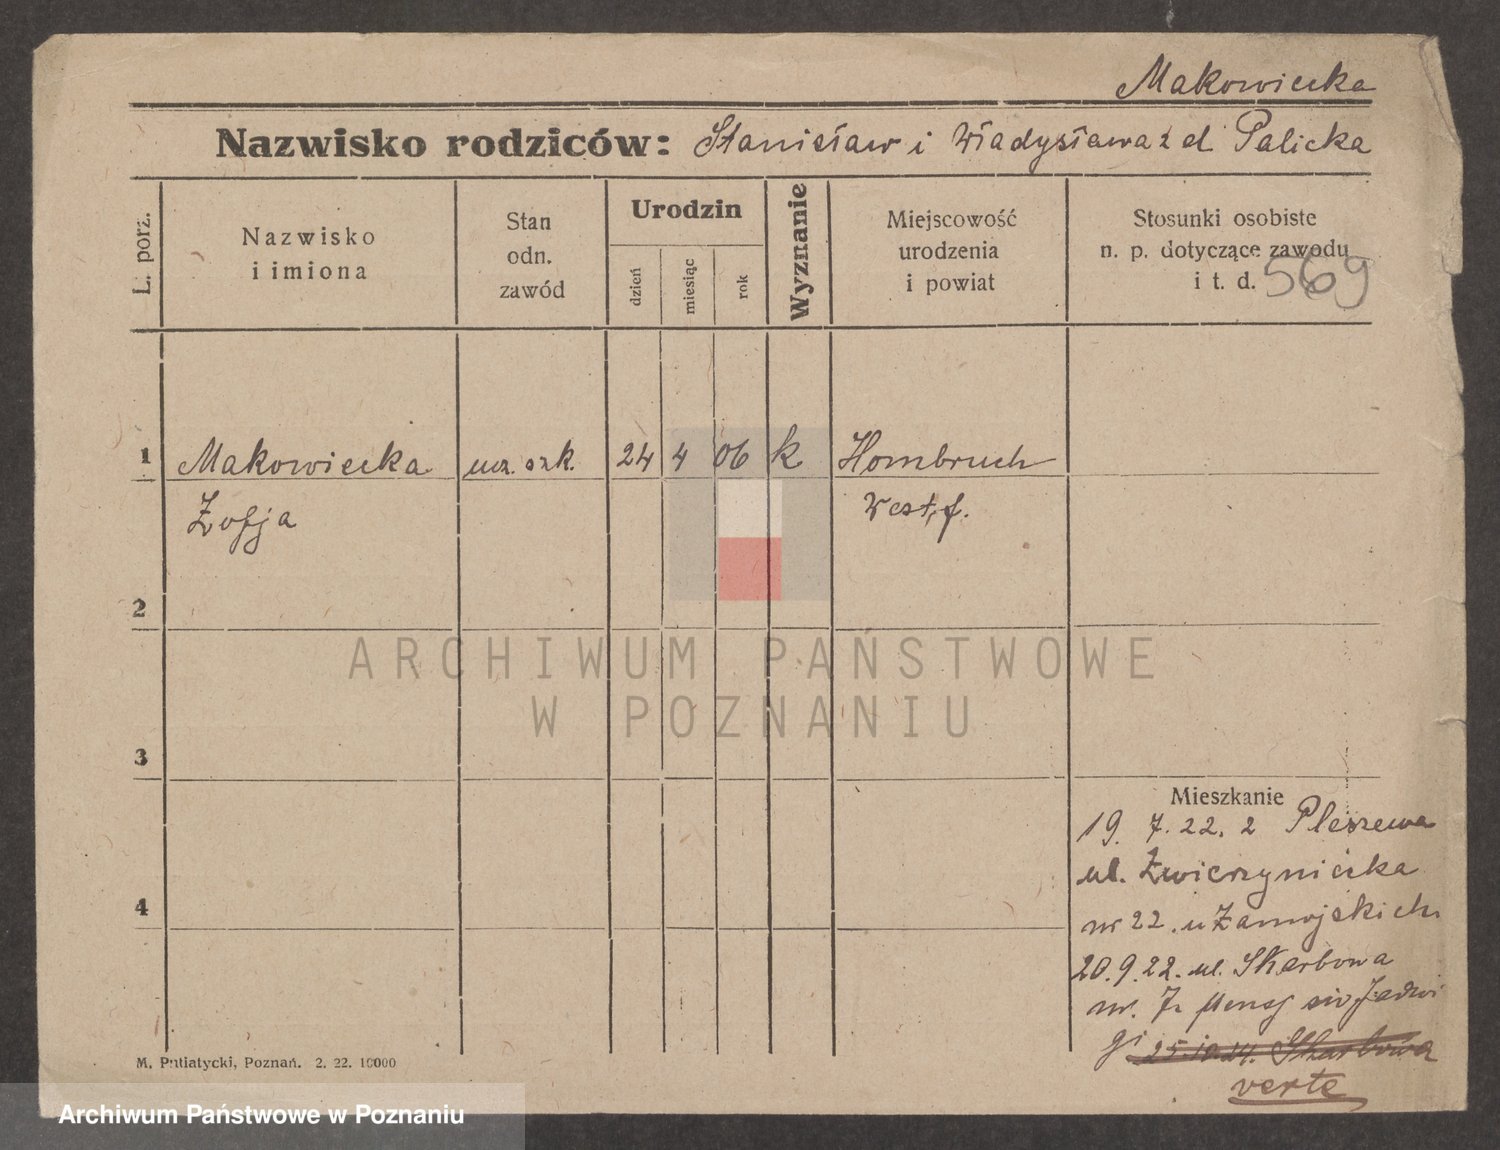 Makowiecka
Nazwisko rodziców: Stanisław i Władysława z d. Palicka
L. porz.
Nazwisko
i imiona
Stan
odn.
zawód
Urodzin
dzień
miesiąc
rok
Wyznanie
Miejscowość
urodzenia
i powiat
Stosunki osobiste
n. p. dotyczące zawodu
i t. d. 569
1 Makowiecka ucz. szk. 24 4 06 k Hombruch
Zofja Westf.
2
ARCHIWUM PAŃSTWOWE
W POZNANIU
3
Mieszkanie
19. 7. 22. z Pleszewa
ul. Zwierzyniecka
4
nr 22. u Zamojskich
20. 9. 22. ul. Skarbowa
nr. 7. Jadwi
gi 25.10.24. Skarbowa
verte
M. Putiatycki, Poznań. 2. 22. 10000
Archiwum Państwowe w Poznaniu